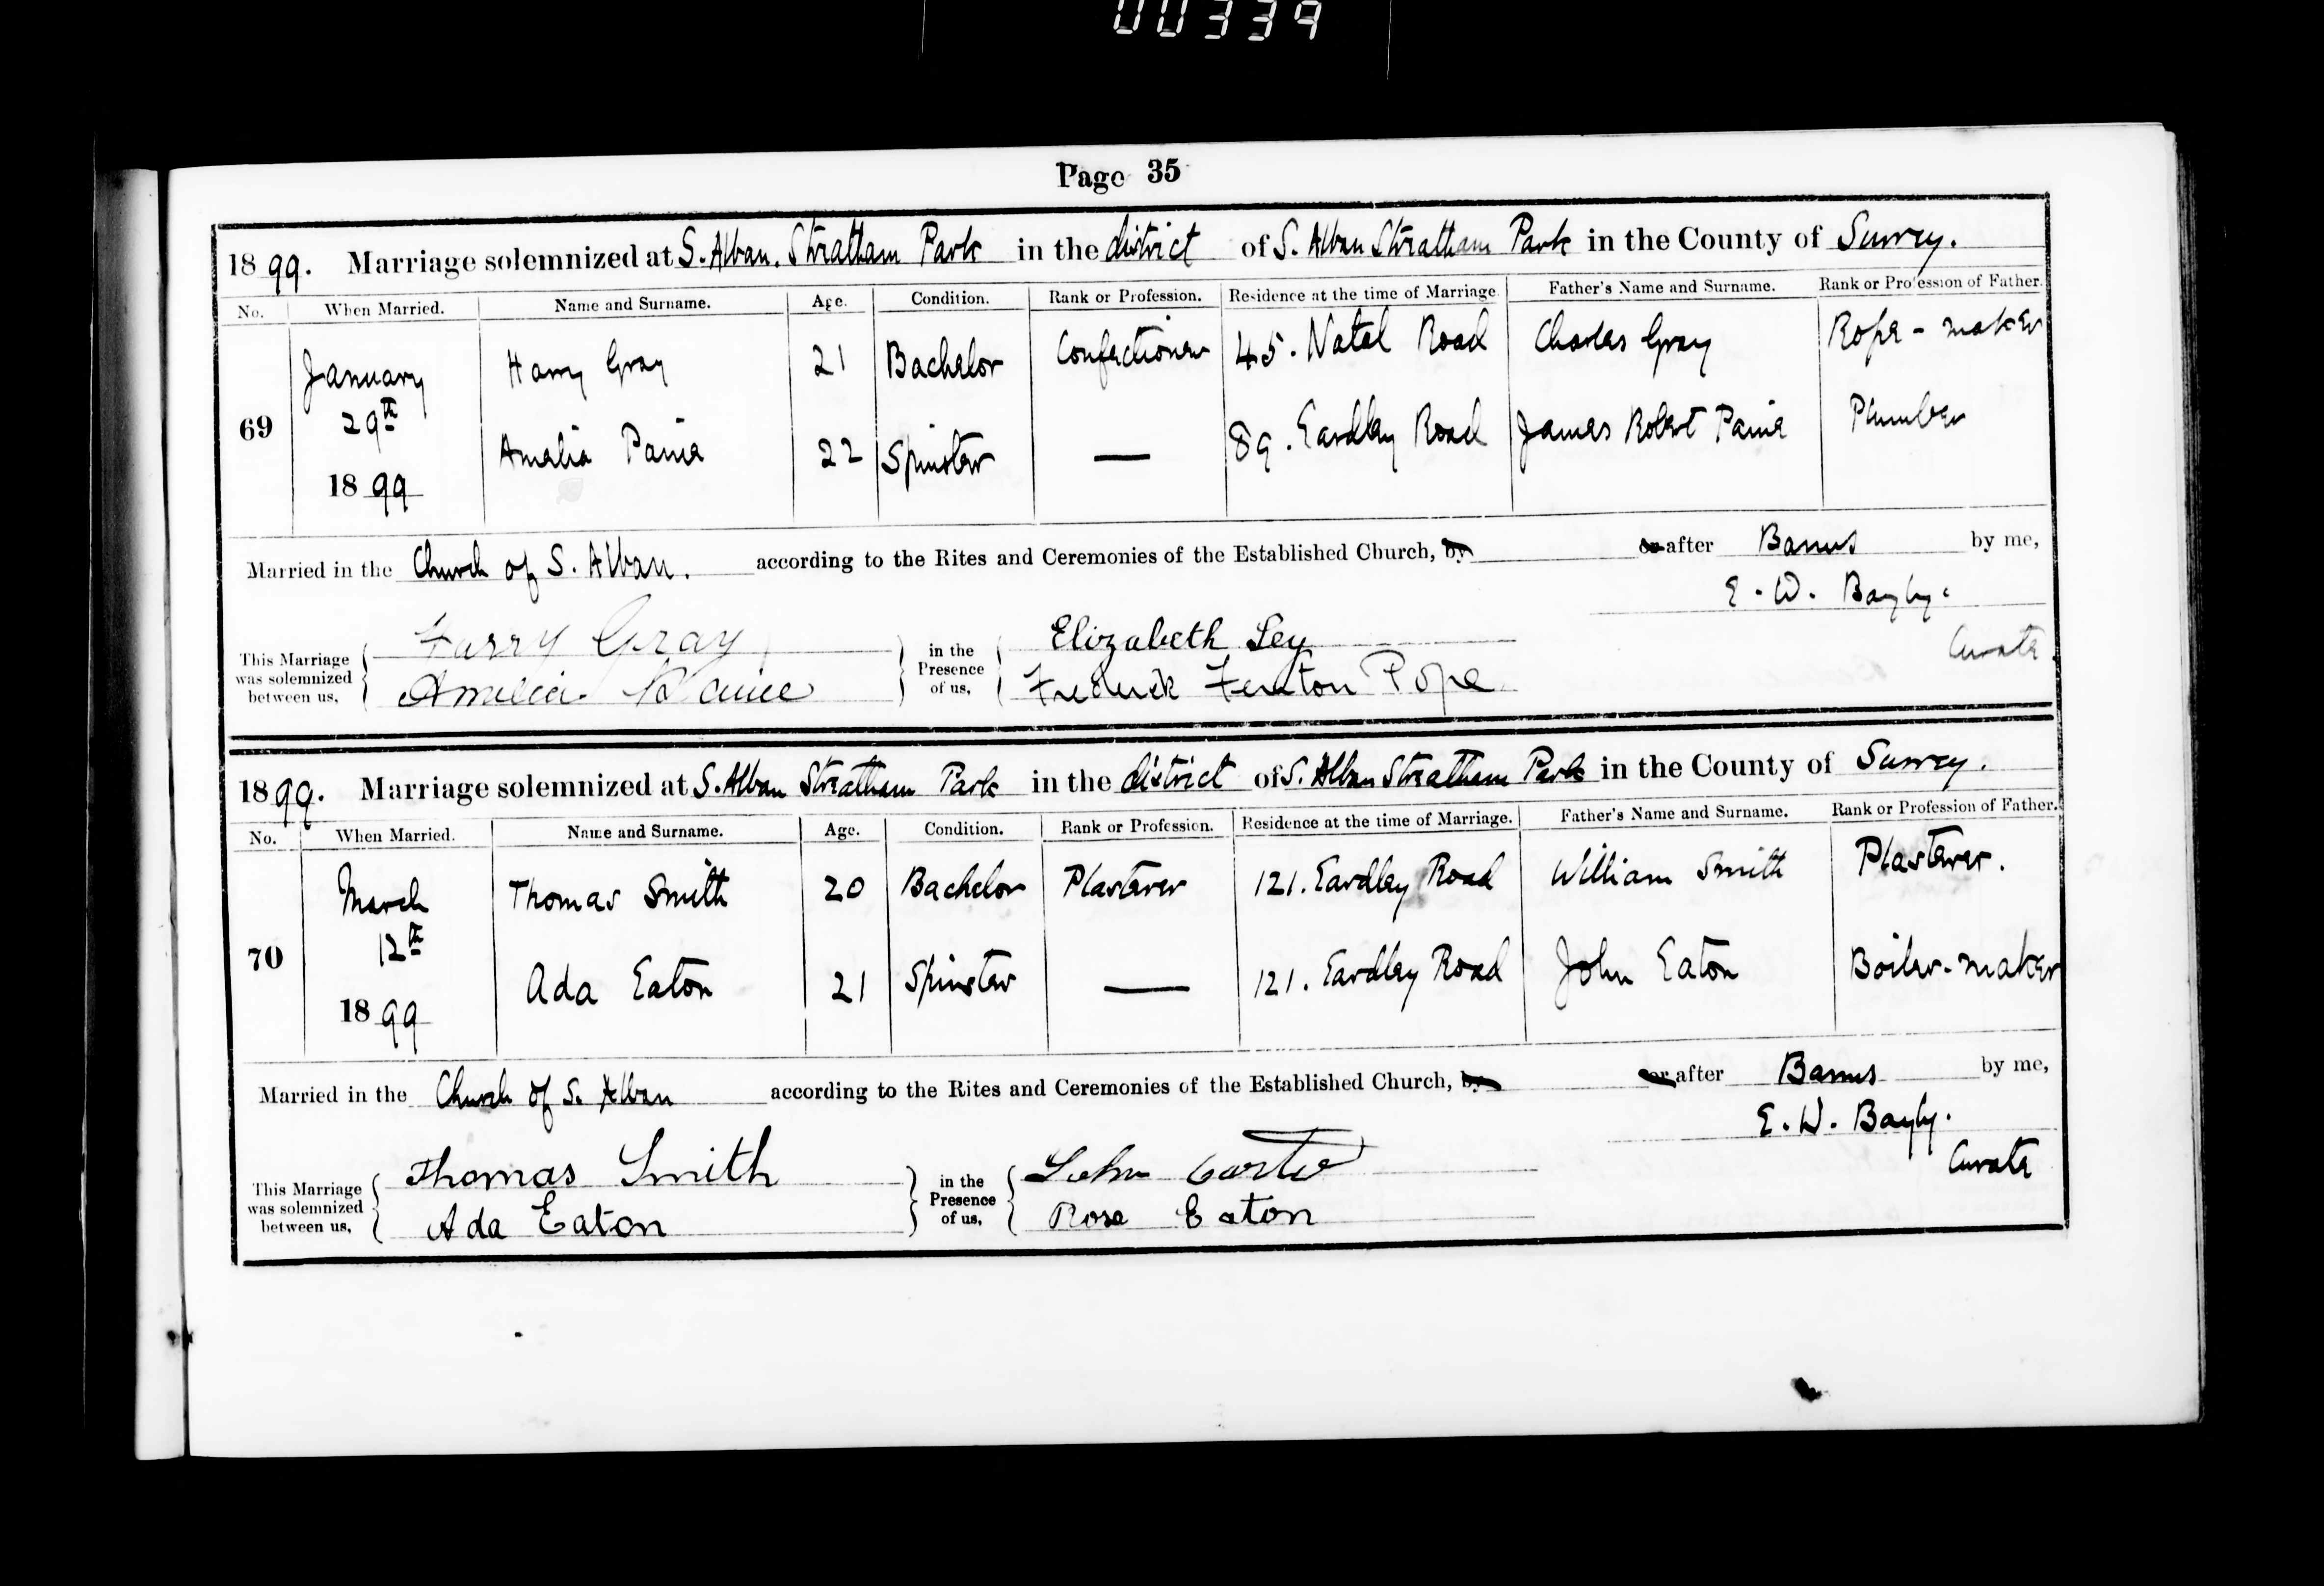 00339
Page 35
1899. Marriage solemnized at S. Alban. Streatham Park in the district of S. Alban Streatham Park in the County of Surrey.
No. When Married. Name and Surname. Age. Condition. Rank or Profession. Residence at the time of Marriage. Father's Name and Surname. Rank or Profession of Father.
January Harry Gray 21 Bachelor Confectioner 45. Natal Road Charles Gray Rope-maker
69 29th
Amelia Paine 22 Spinster — 89. Eardley Road James Robert Paine Plumber
1899
Married in the Church of S. Alban. according to the Rites and Ceremonies of the Established Church, by or after Banns by me,
E. W. Bayly.
Curate
This Marriage was solemnized between us, Harry Gray in the Presence of us, Elizabeth Ley
Amelia Paine Frederick Fenton Pope
1899. Marriage solemnized at S. Alban Streatham Park in the district of S. Alban Streatham Park in the County of Surrey.
No. When Married. Name and Surname. Age. Condition. Rank or Profession. Residence at the time of Marriage. Father's Name and Surname. Rank or Profession of Father.
March Thomas Smith 20 Bachelor Plasterer 121. Eardley Road William Smith Plasterer.
70 12th
Ada Eaton 21 Spinster — 121. Eardley Road John Eaton Boiler-maker
1899
Married in the Church of S. Alban according to the Rites and Ceremonies of the Established Church, by or after Banns by me,
E. W. Bayly.
Curate
This Marriage was solemnized between us, Thomas Smith in the Presence of us, John Carter
Ada Eaton Rose Eaton